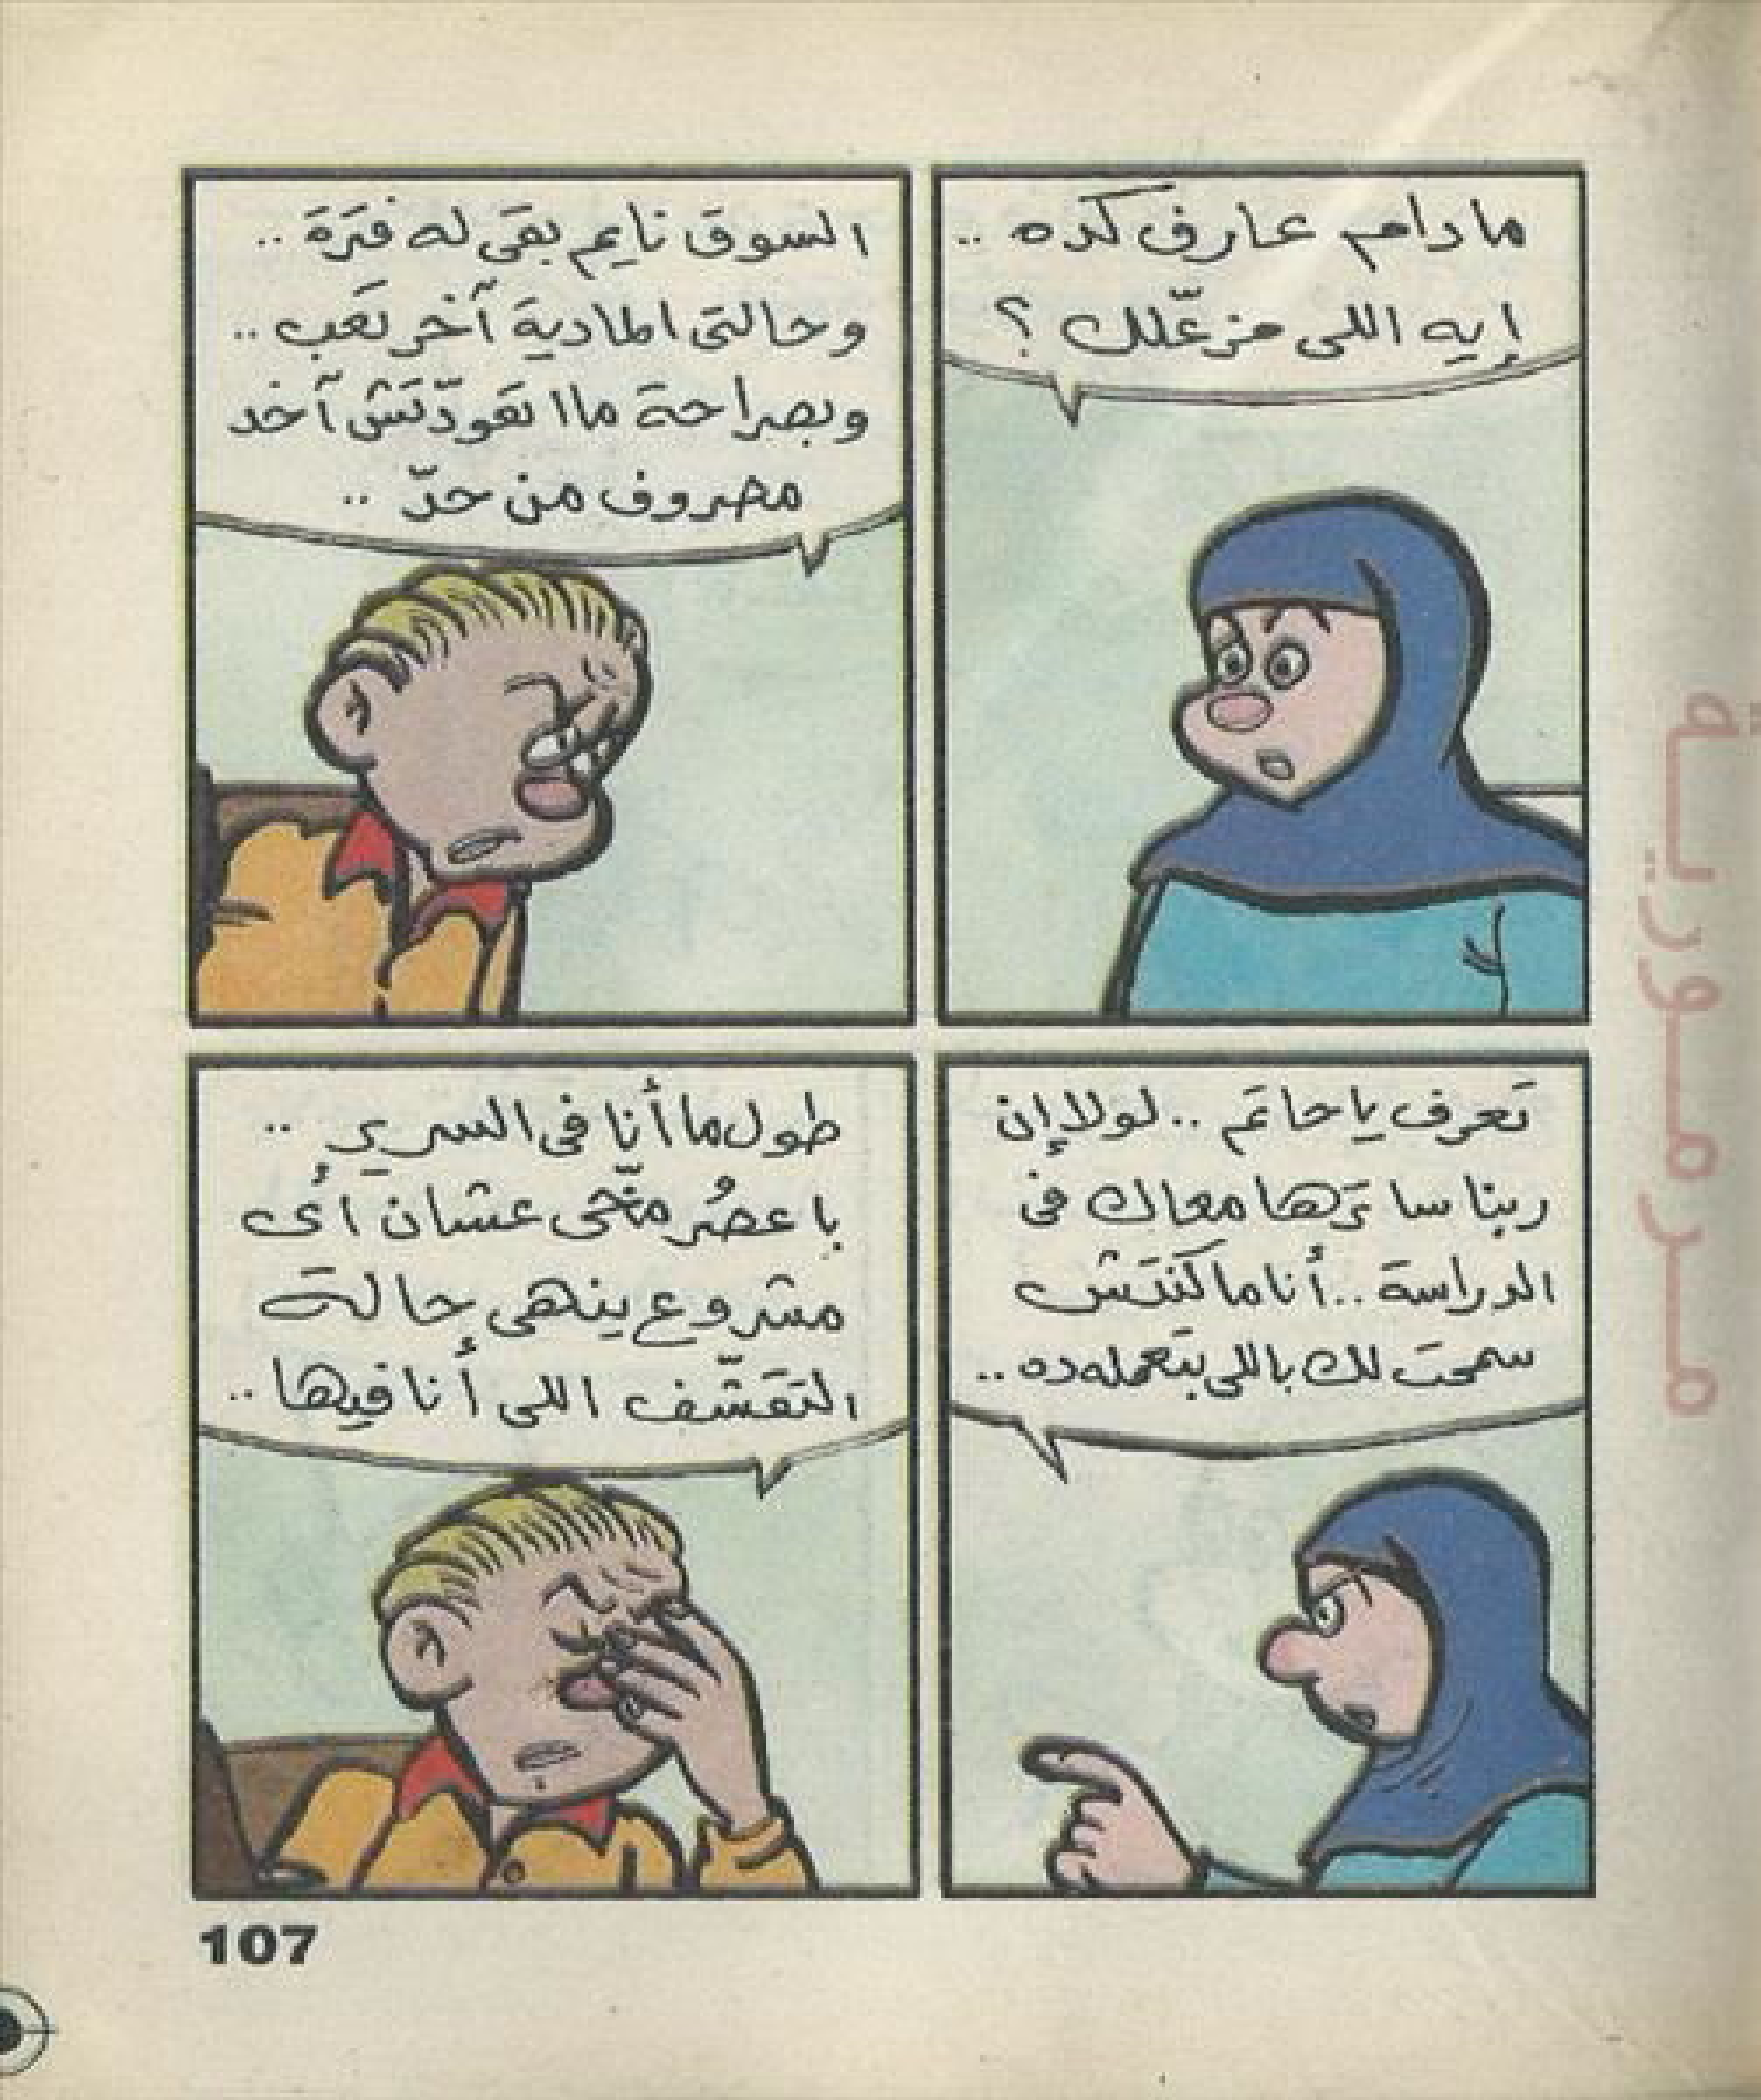 مادام عارف كده ..
إيه اللى مزعّلك ؟
السوق نايم بقى له فترة ..
وحالتى المادية آخر تعب ..
وبصراحة ما اتعوّدتش آخد
مصروف من حدّ ..
تعرف يا حاتم .. لولا إن
ربنا ساترها معاك فى
الدراسة .. أنا ما كنتش
سمحت لك باللى بتعمله ده ..
طول ما أنا فى السرير ..
باعصُر مخّى عشان أى
مشروع ينهى حالة
التقشّف اللى أنا فيها ..
107
مرمورية